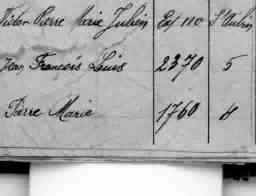 Victor Pierre Marie Julien Ex 110 St Aubin
Jean Francois Louis 2370 5
Pierre Marie 1760